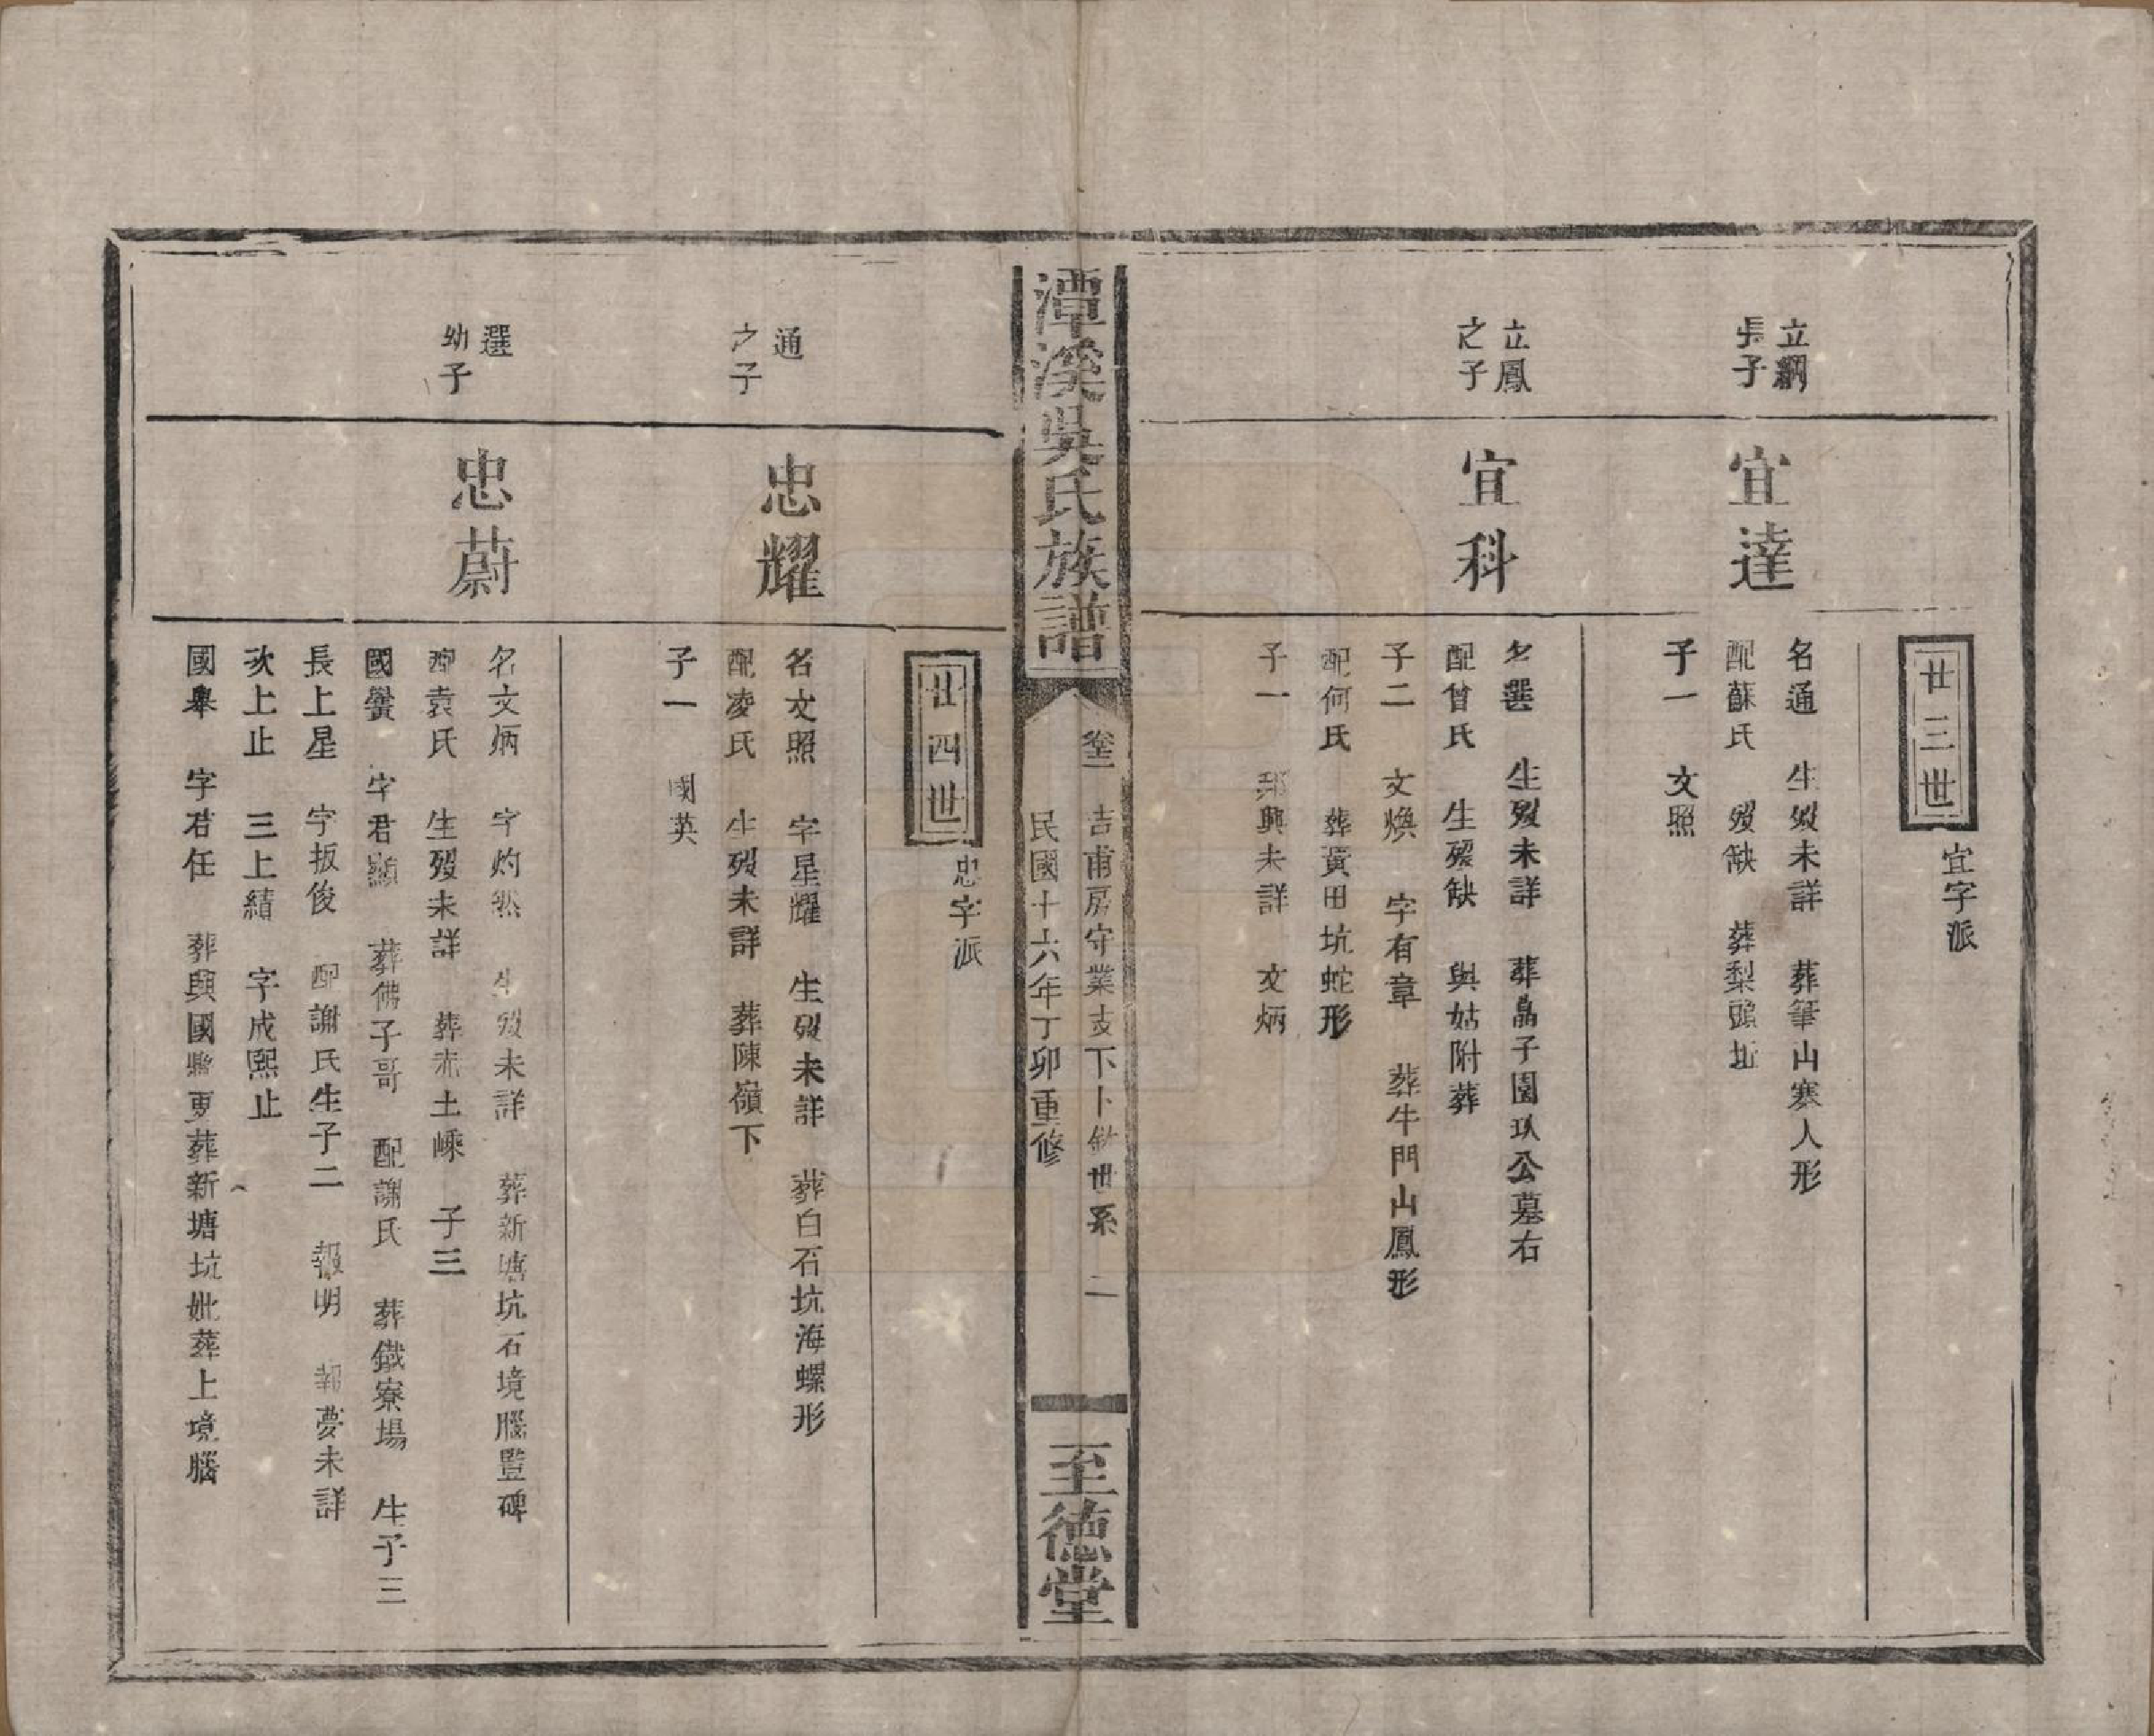 廿三世
宜字派
立綱
長子
宜達
名通　生歿未詳　葬筆山寨人形
配蘇氏　歿缺　葬梨頭坵
子一　文照
立鳳
之子
宜科
名選　生歿未詳　葬晶子園玖公墓右
配曾氏　生歿缺　與姑附葬
子二　文煥　字有章　葬牛門山鳳形
配何氏　葬黃田坑蛇形
子一　邦興未詳　文炳
潭溪吳氏族譜
卷二　吉甫房守業支下卜欽世系　二
民國十六年丁卯重修
至德堂
廿四世
忠字派
通
之子
忠耀
名文照　字星耀　生歿未詳　葬白石坑海螺形
配凌氏　生歿未詳　葬陳嶺下
子一　國英
選
幼子
忠蔚
名文炳　字灼然　生歿未詳　葬新塘坑石境腦豎碑
配袁氏　生歿未詳　葬赤土嵊　子三
國黌　字君顯　葬佛子哥　配謝氏　葬鐵寮場　生子三
長上星　字扳俊　配謝氏生子二　報明　報夢未詳
次上止　三上績　字成熙止
國舉　字君任　葬興國縣更葬新塘坑妣葬上境腦